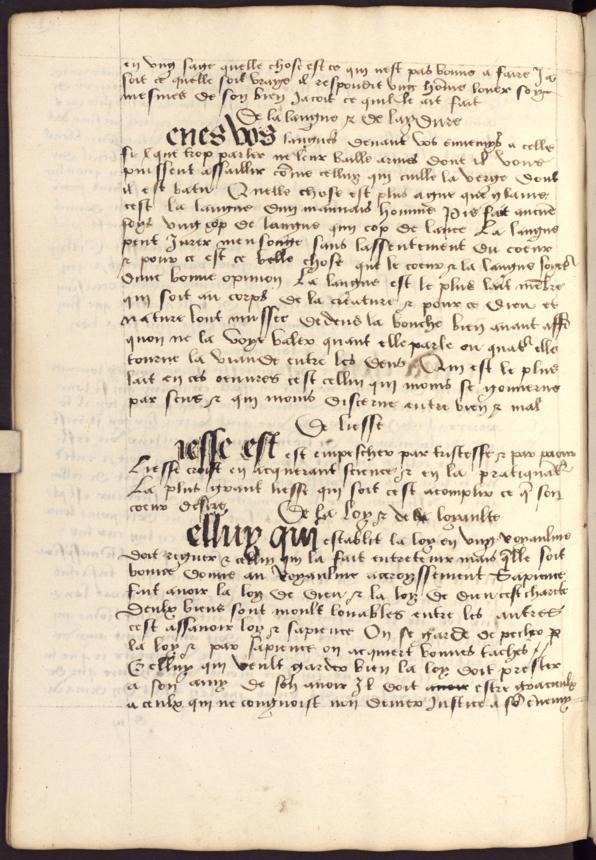 en ung sage quelle chose est ce qui nest pas bonne a faire Ja
soit ce quelle soit vraye il respondit ung home louer soy
mesmes de son bien Jacoit ce quil le ait fait
De la langue & de
enes vos langues deuant vos ennemys a celle
fi que trop parler ne leur baille armes dont il vous
puissent assaillir come celluy qui cuille la verge dont
il est batu Quelle chose est plus ague
cest la langue dun mauuais homme pis fait aucune
foys ung cop de langue qui cop de lance La langue
peut Jurer mensonge sans lassentement du coeur
& pour ce est ce belle chose que le coeur & la langue soyet
dune bonne opinion La langue est le plus lait mebre
qui soit au corps de la creature & pour ce dieu et
nature lont mussee dedens la bouche bien auant affi
quon ne la voye baler quant elle parle ou quat elle
tourne la viande entre les dens Qui est le plus
lait en ces oeuures cest cellui qui moins se gouuerne
par sens & qui moins discerne entre bien & mal
De liesse
iesse est est empeschee par tristesse & par
Liesse croist en acquerant science & en la pratiquat
La plus grant liesse qui soit cest acomplir ce q son
coeur desire De la loy & de la loyaulte
elluy qui establit la loy en ung Royaulme
doit regner & cellui qui la fait entretenir mais qlle soit
bonne donne au Royaulme acroyssement Sapience
fait auoir la loy de dieu & la loy de dieu cest charite
deulx biens sont moult louables entre les autres
cest assauoir loy & sapience On se garde de pechie p
la loy & par sapience on acquiert bonnes taches
Celluy qui veult garder bien la loy doit prester
a son amy de son auoir Il doit estre gracieulx
a ceulx qui ne congnoist non deuier Justice a so enemy